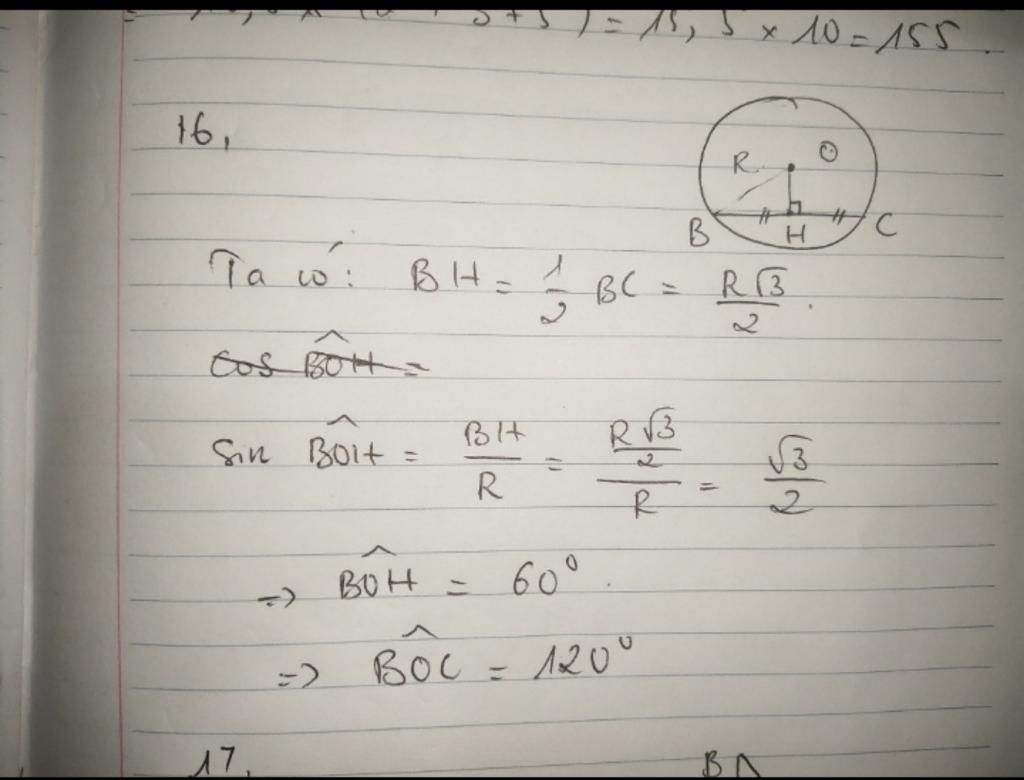 ) = 15,5 × 10 = 155.
16,
R O
B H C
Ta có: BH = 1/2 BC = R√3/2.
cos BOH =
Sin BÔH = BH/R = (R√3/2)/R = √3/2
=> BÔH = 60⁰.
=> BÔC = 120⁰
17,
B